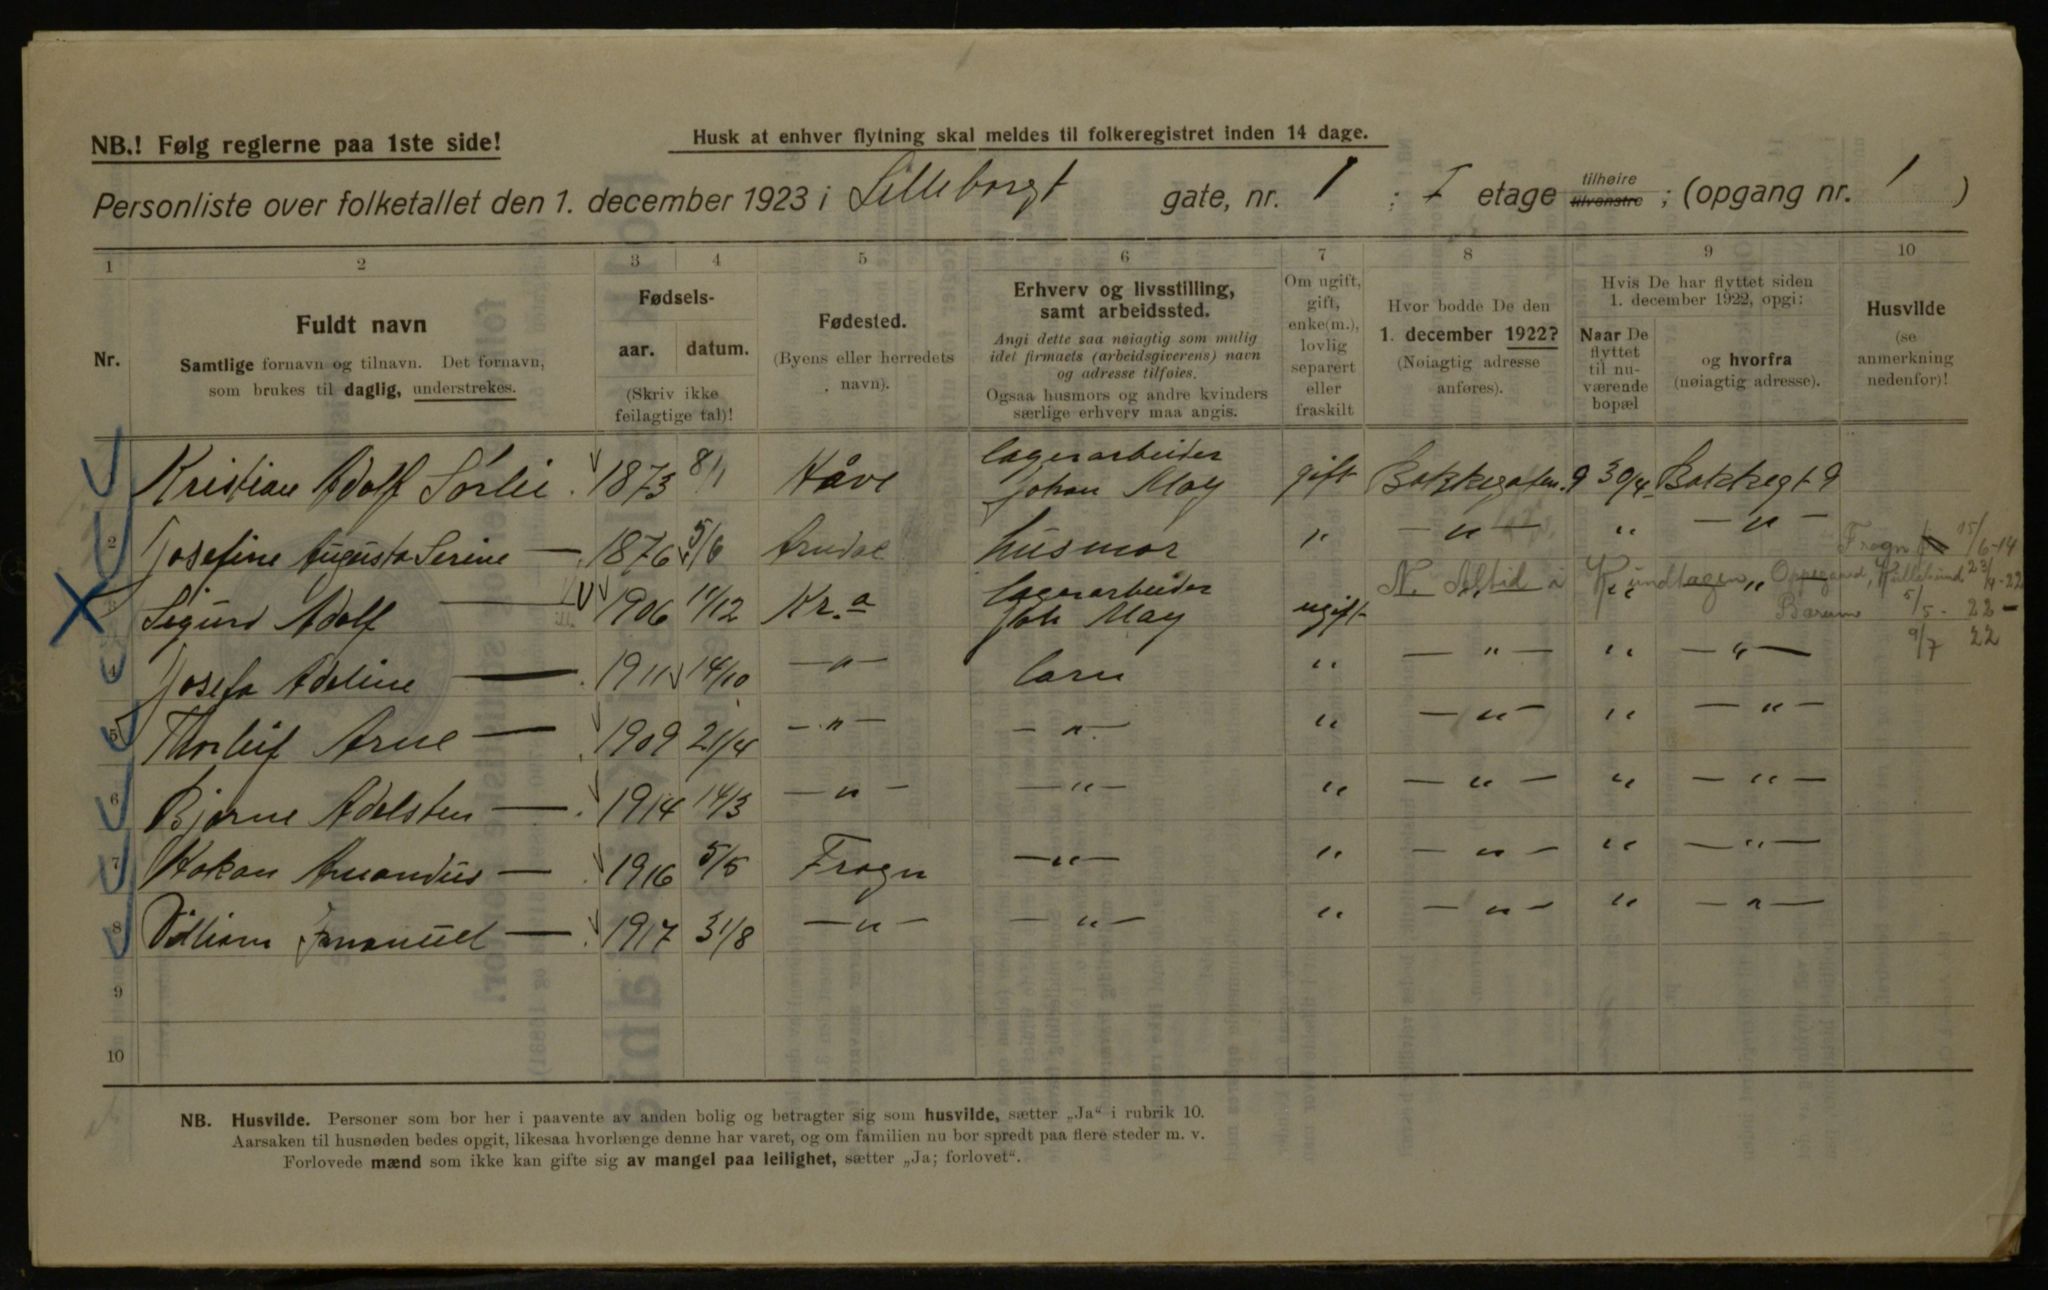 NB.! Følg reglerne paa 1ste side!
Husk at enhver flytning skal meldes til folkeregistret inden 14 dage.
Personliste over folketallet den 1. december 1923 i Lilleborgt gate, nr. 1 ; I etage tilhøire tilvenstre ; (opgang nr. 1 )
1 2 3 4 5 6 7 8 9 10
Nr.
Fuldt navn
Samtlige fornavn og tilnavn. Det fornavn,
som brukes til daglig, understrekes.
Fødsels-
aar. datum.
(Skriv ikke
feilagtige tal)!
Fødested.
(Byens eller herredets
navn).
Erhverv og livsstilling,
samt arbeidssted.
Angi dette saa nøiagtig som mulig
idet firmaets (arbeidsgiverens) navn
og adresse tilføies.
Ogsaa husmors og andre kvinders
særlige erhverv maa angis.
Om ugift,
gift,
enke(m.),
lovlig
separert
eller
fraskilt
Hvor bodde De den
1. december 1922?
(Nøiagtig adresse
anføres).
Hvis De har flyttet siden
1. december 1922, opgi:
Naar De
flyttet
til nu-
værende
bopæl
og hvorfra
(nøiagtig adresse).
Husvilde
(se
anmerkning
nedenfor)!
Kristian Adolf Sørlie 1873 8/1 Håve lagerarbeider Johan May gift Bakkegaten 9 30/4 Bakkegt 9
2 Josefine Augusta Serine — 1876 5/6 Arndal husmor " — " — " — " — Frogn 15/6-14
Sigurd Adolf — 1906 11/12 Kr.a lagerarbeider Joh May ugift " " " 23/4-22
Bærum 5/5 - 22 —
9/7 22
4 Josefa Adeline — 1911 14/10 — " — barn " — " — " — " —
5 Thorleif Arne — 1909 21/4 — " — — " — " — " — " — " —
6 Bjarne Adelsten — 1914 14/3 — " — — " — " — " — " — " —
7 Hakon Amandus — 1916 5/5 Frogn — " — " — " — " — " —
8 Villiam Emanuel — 1917 31/8 — " — — " — " — " — " — " —
9
10
NB. Husvilde. Personer som bor her i paavente av anden bolig og betragter sig som husvilde, sætter „Ja“ i rubrik 10.
Aarsaken til husnøden bedes opgit, likesaa hvorlænge denne har varet, og om familien nu bor spredt paa flere steder m. v.
Forlovede mænd som ikke kan gifte sig av mangel paa leilighet, sætter „Ja; forlovet“.